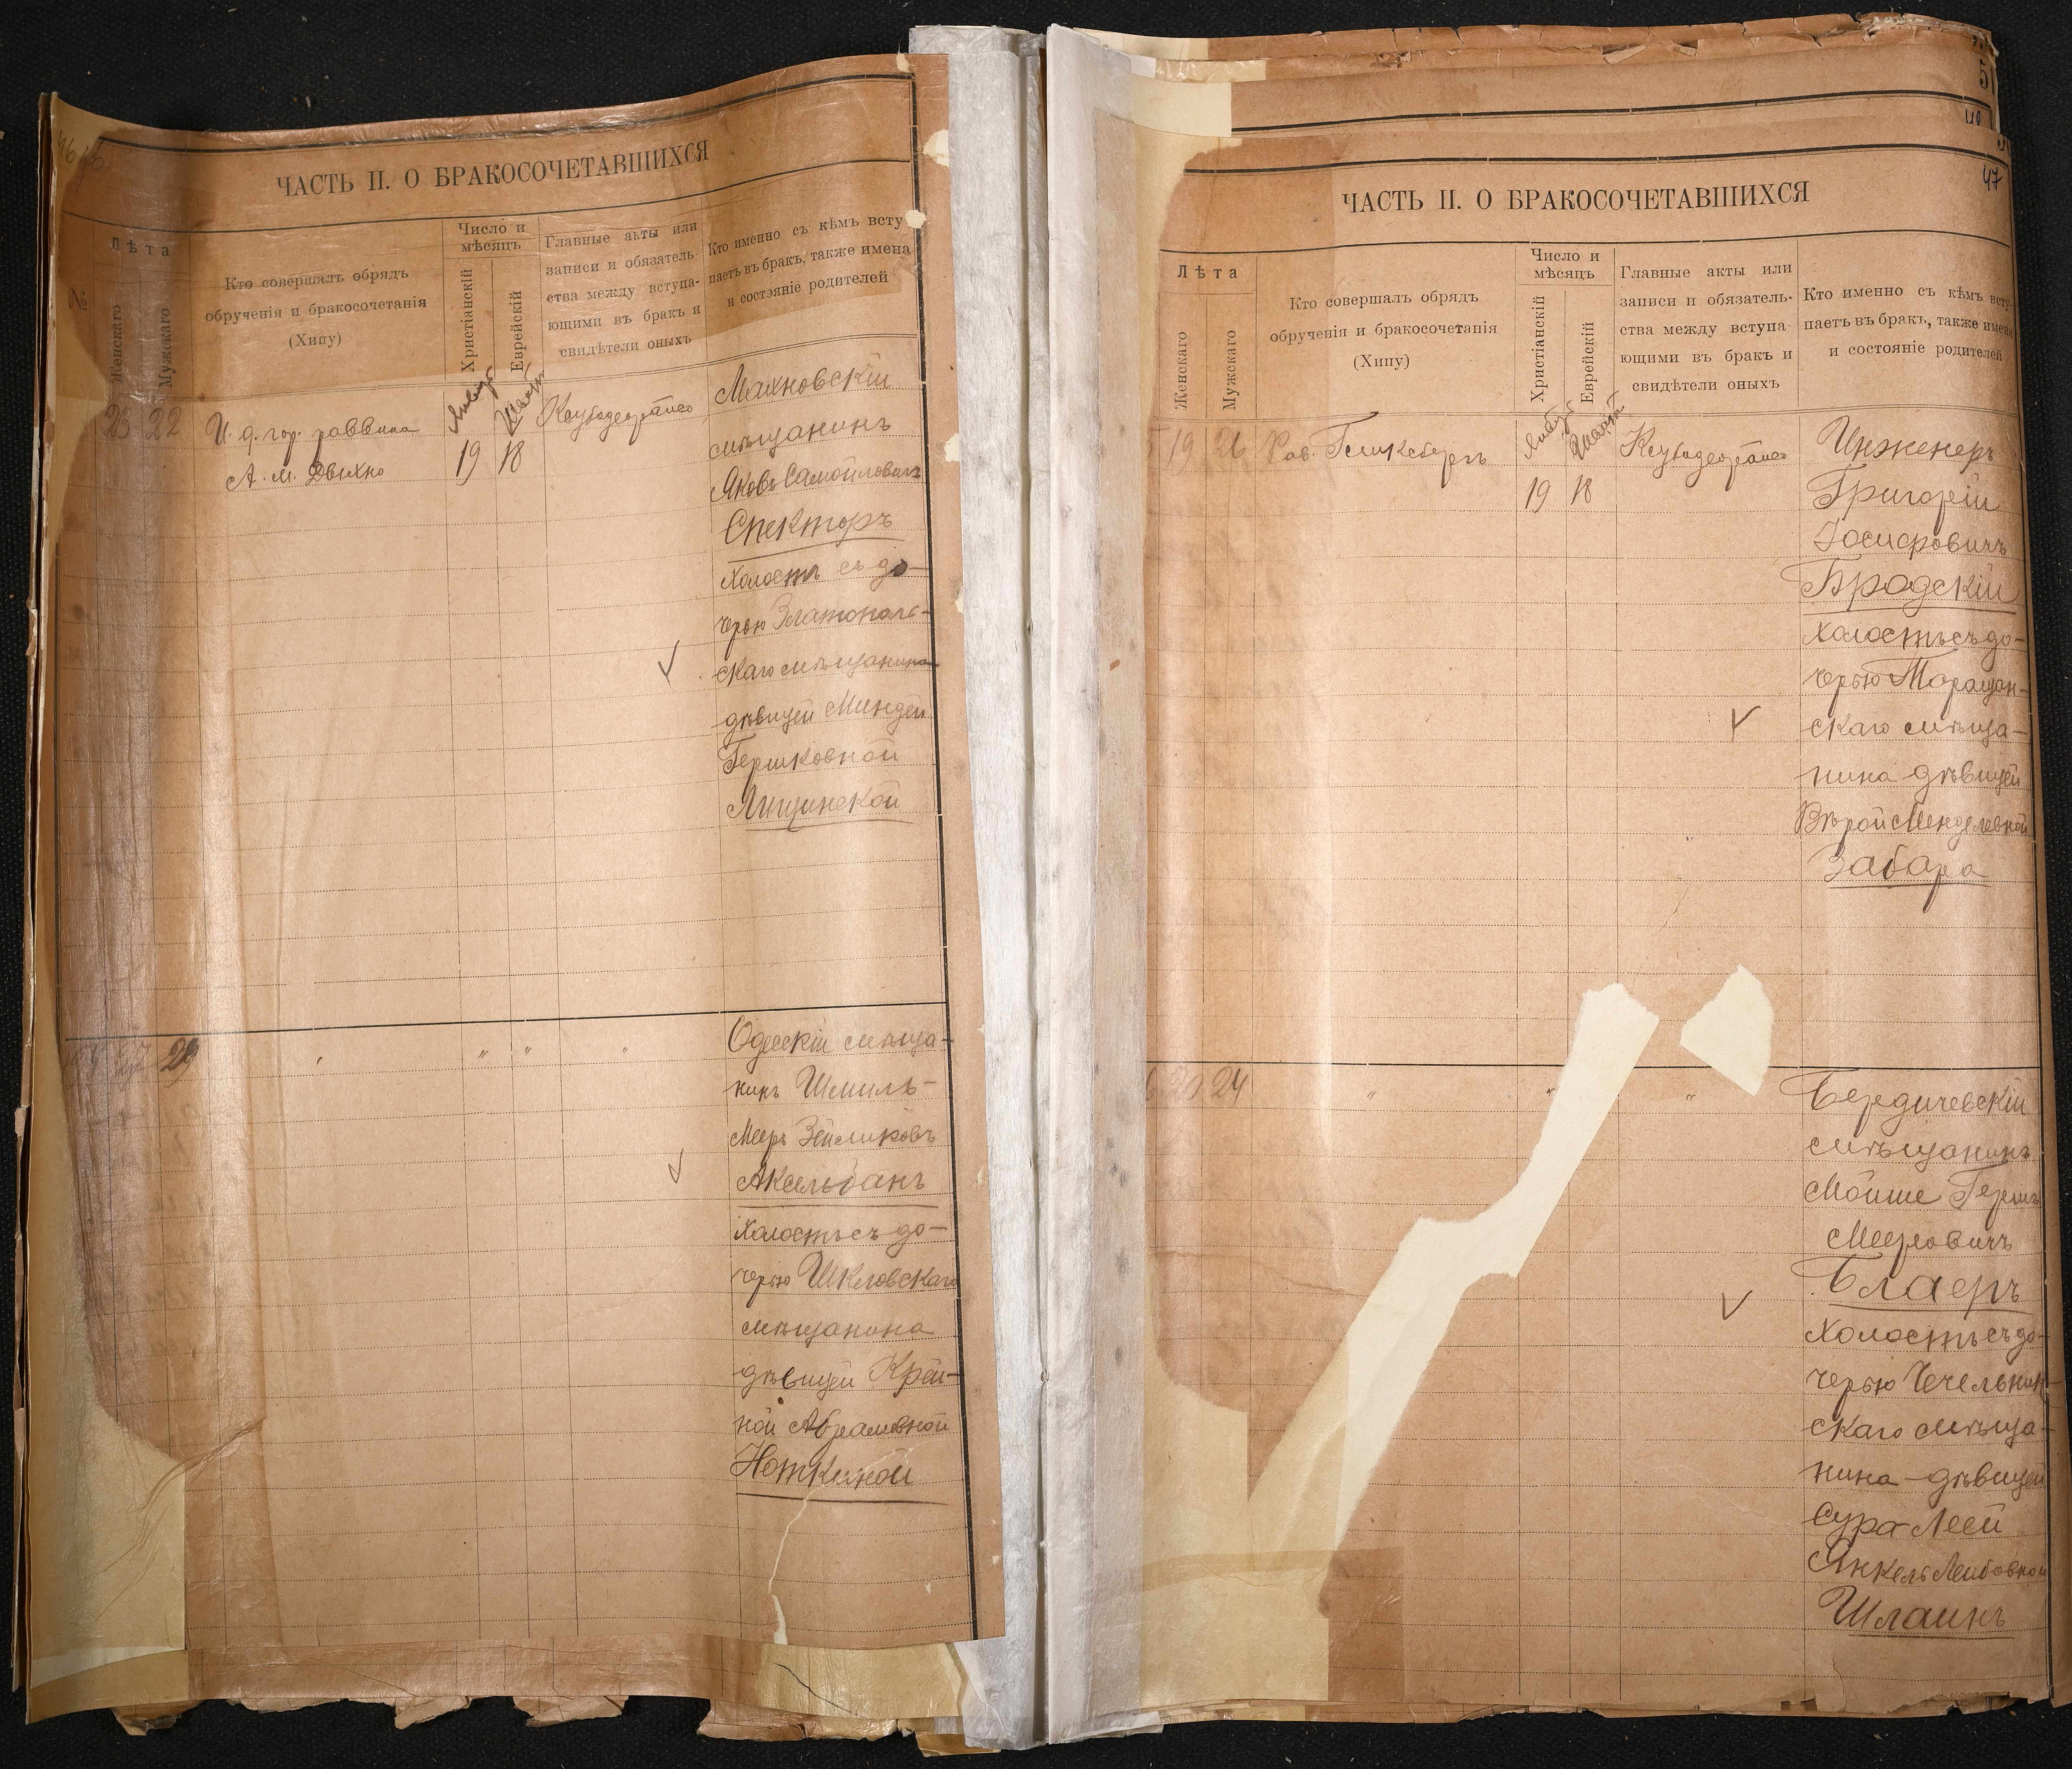 ЧАСТЬ II. О БРАКОСОЧЕТАВШИХСЯ
№
Лѣта
Женскаго
Мужскаго
Кто совершалъ обрядъ
обрученія и бракосочетанія
(Хипу)
Число и
мѣсяцъ
Христіанскій
Еврейскій
Главные акты или
записи и обязатель-
ства между вступа-
ющими въ бракъ и
свидѣтели оныхъ
Кто именно съ кѣмъ всту
паетъ въ бракъ, также имена
и состояніе родителей
23 22
И. д. гор. раввина
А. М. Двихно
Январь
Шватъ
19 18
Махновскій
мѣщанинъ
Яковъ Самойловичъ
Спекторъ
холостъ съ до-
черью Златополь-
скаго мѣщанина
дѣвицей Миндей
Гершковной
Лищинской
29
" " "
Одесскій мѣща-
нинъ Шмиль-
Мееръ Зейликовъ
Аксельбанъ
холостъ съ до-
черью Шкловскаго
мѣщанина
дѣвицей Крей-
ной Абрамовной
Ноткиной
5
48
47
ЧАСТЬ II. О БРАКОСОЧЕТАВШИХСЯ
Лѣта
Женскаго
Мужскаго
Кто совершалъ обрядъ
обрученія и бракосочетанія
(Хипу)
Число и
мѣсяцъ
Христіанскій
Еврейскій
Главные акты или
записи и обязатель-
ства между вступа
ющими въ бракъ и
свидѣтели оныхъ
Кто именно съ кѣмъ всту-
паетъ въ бракъ, также имена
и состояніе родителей
19 26
Рав.
Январь
Шватъ
19 18
Инженеръ
Григорій
Іосифовичъ
Бродскій
холостъ съ до-
черью Таращан-
скаго мѣща-
нина дѣвицей
Вѣрой Менделевной
Забара
24
" " "
Бердичевскій
мѣщанинъ
Мойше Гершъ
Мееровичъ
Блаеръ
холостъ съ до-
черью Чечельник-
скаго мѣща-
нина - дѣвицей
Сура Леей
Янкель Лейбовной
Шлаинъ